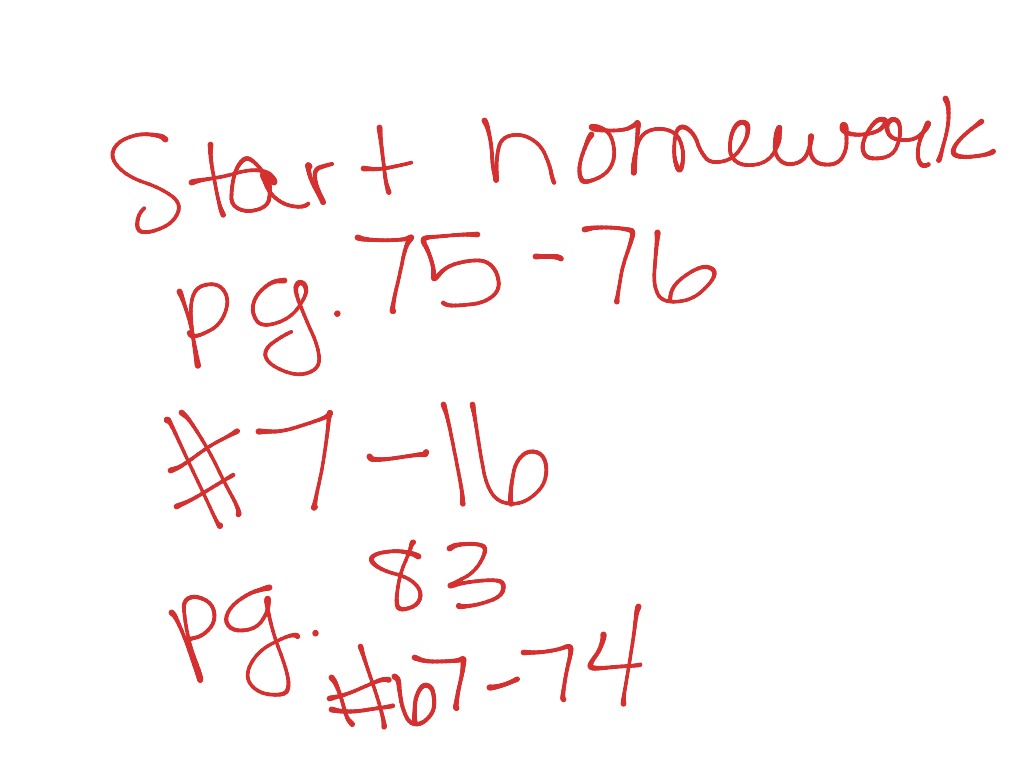 Start homework
pg. 75-76
#7-16
pg. 83
#67-74